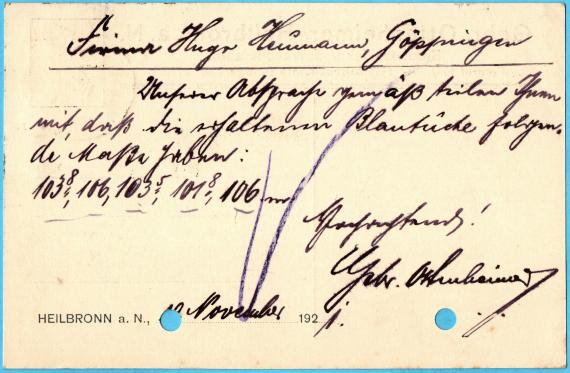 Firma Hugo Heumann, Göppingen
Unserer Absprache gemäß teilen Ihnen
mit, daß die erhaltenen Blautuche folgen-
de Maße haben:
103⁸, 106, 103⁵, 101⁸, 106 m
Hochachtend!
Gebr. Ottenheimer
HEILBRONN a. N., November 192